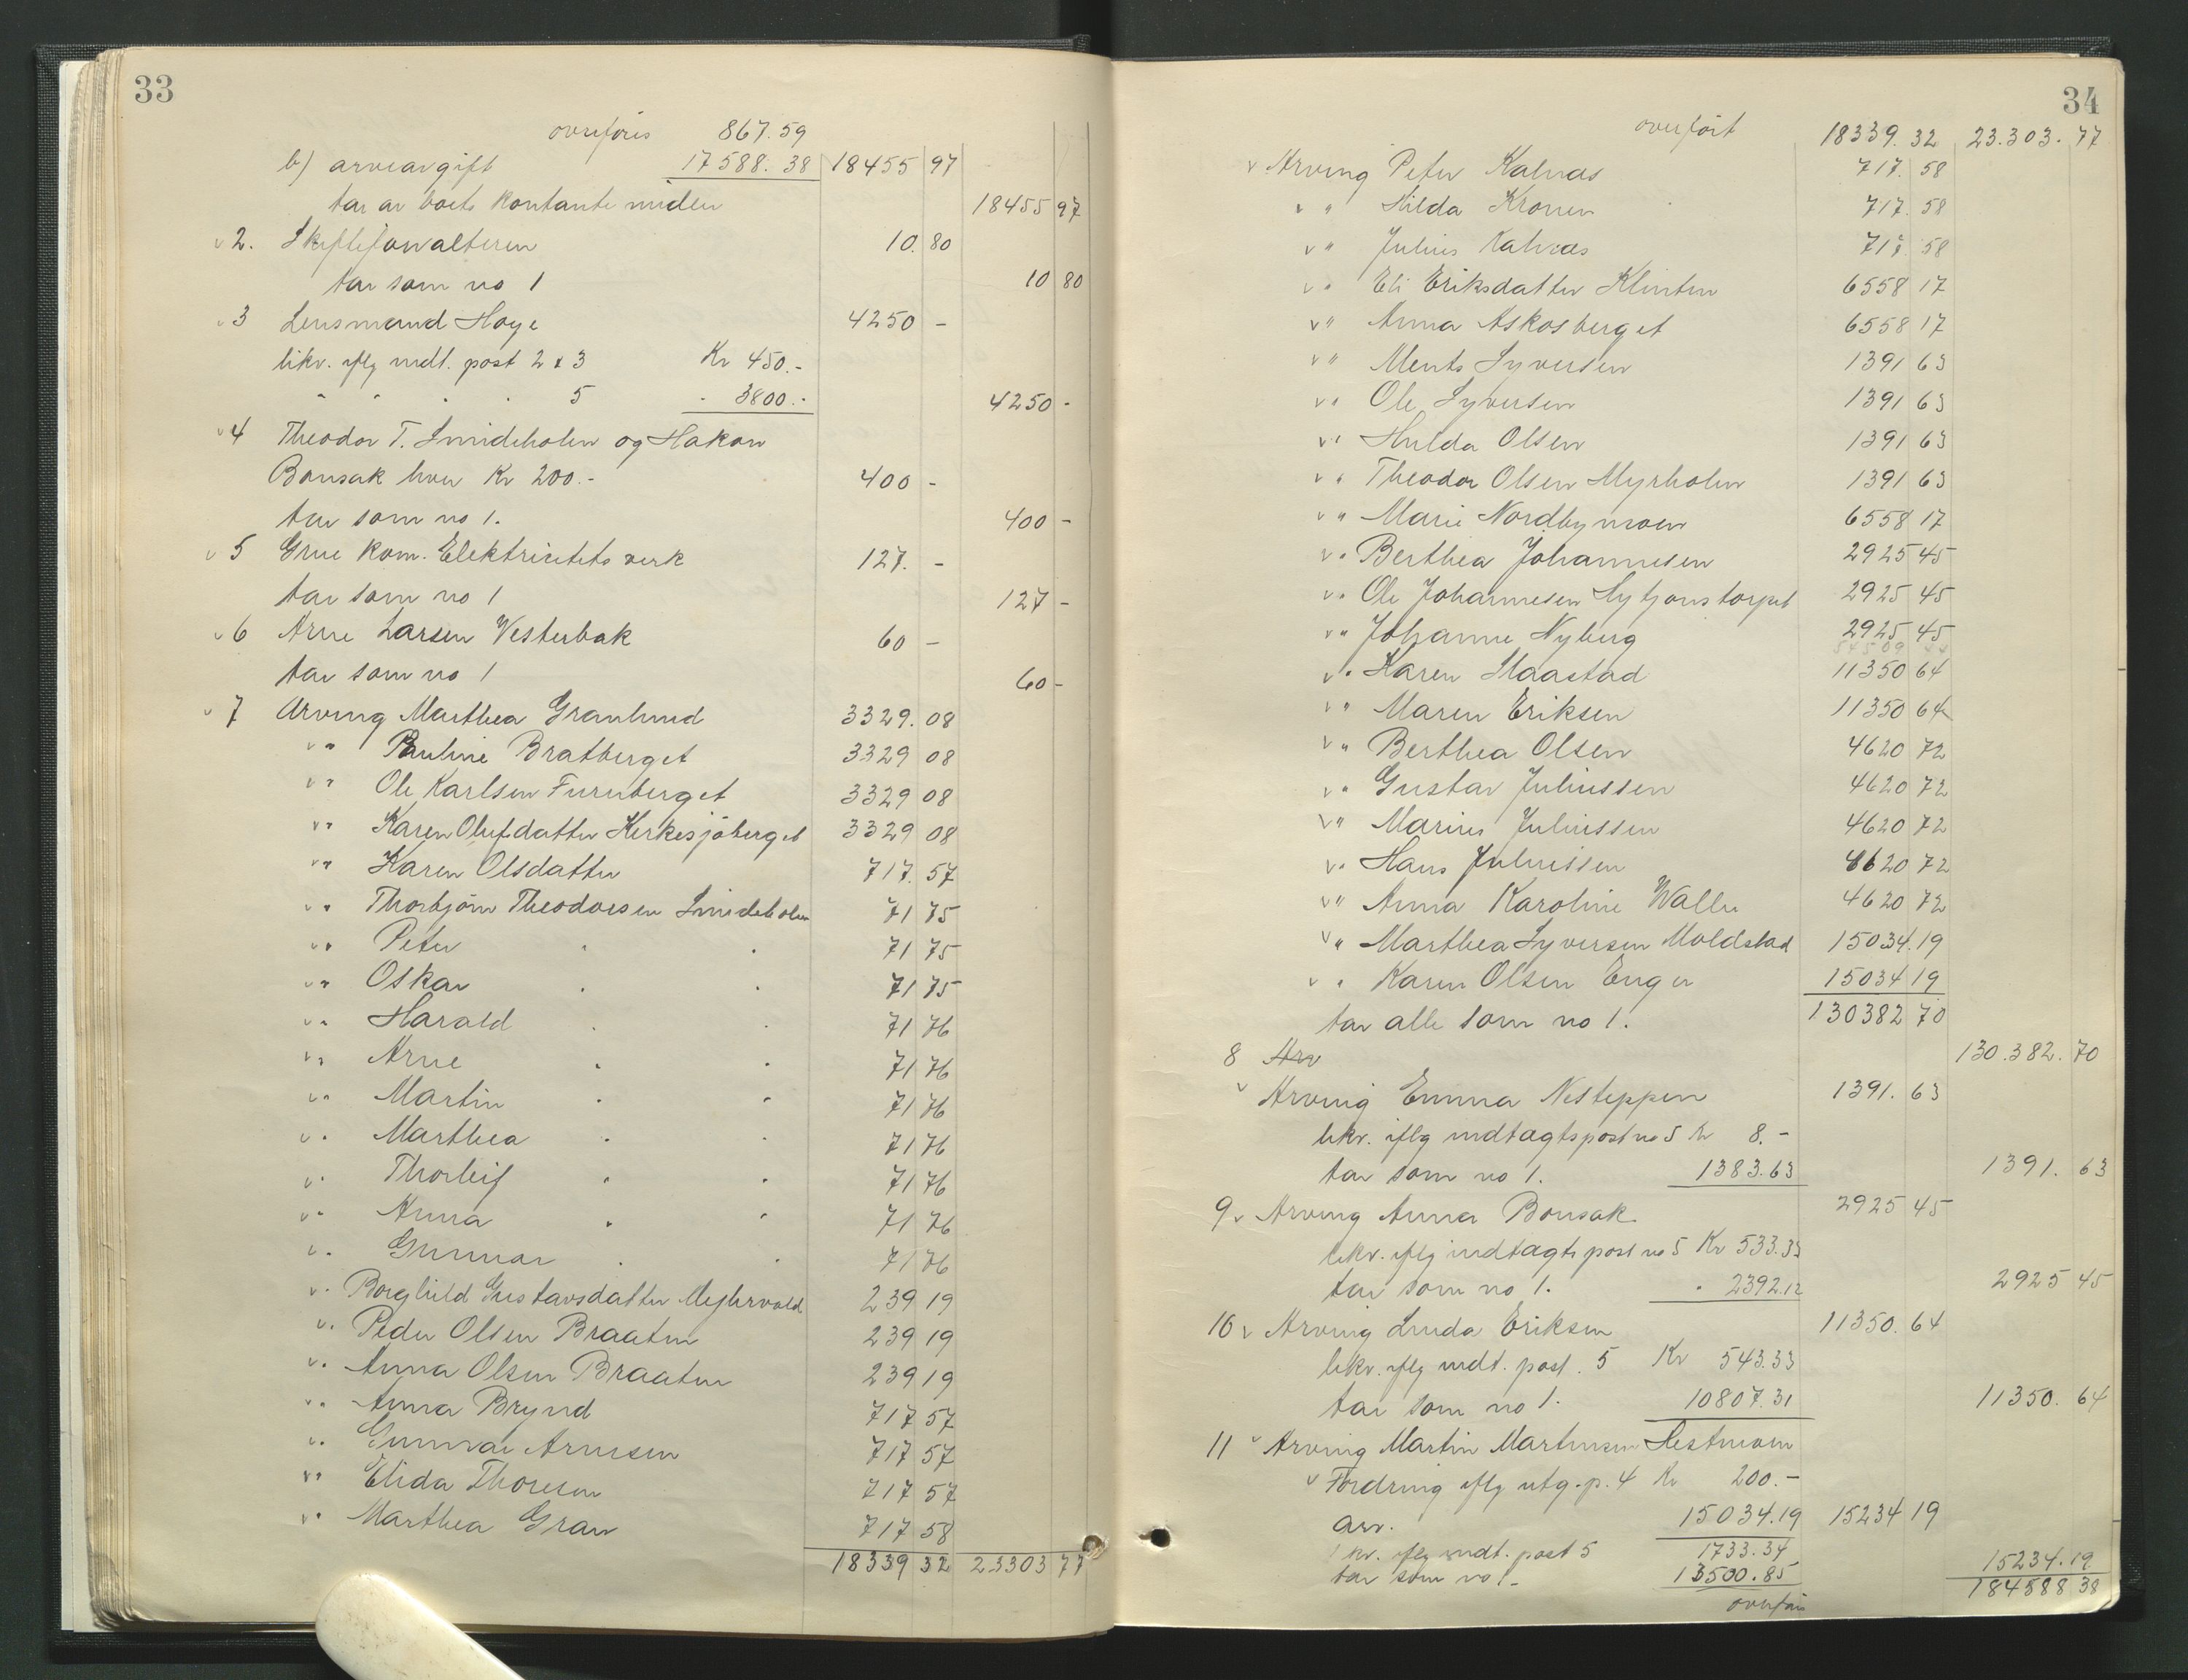 33
overføres 867.59
b) arveavgift 17588.38 18455 97
tar av boets kontante midler 18455 97
v 2. Skifteforvalteren 10.80
tar som no 1 10 80
v 3 Lensmand Hoye 4250 -
likv. iflg indt. post 2 & 3 Kr 450.-
" " " " 5 " 3800.- 4250 -
v 4 Theodor T. Smideholen og Hakon
Bonsak hver Kr 200.- 400 -
tar som no 1. 400 -
v 5 Grue kom. Elektricitets verk 127. -
tar som no 1 127 -
v 6 Arne Larsen Vesterbak 60 -
tar som no 1 60 -
v 7 Arving Marthea Granlund 3329.08
v " Pauline Bratberget 3329 08
v " Ole Karlsen Furuberget 3329 08
v " Karen Olufdatter Kirkesjøberget 3329 08
v " Karen Olsdatter 717.57
v " Thorbjørn Theodorsen Smideholen 71 75
v " Peter " " 71 75
v " Oskar " " 71 75
v " Harald " " 71 76
v " Arne " " 71 76
v " Martin " " 71 76
v " Marthea " " 71 76
v " Thorleif " " 71 76
v " Anna " " 71 76
v " Gunnar " " 71 76
v " Borghild Gustavsdatter 239 19
v " Peder Olsen Braaten 239 19
v " Anna Olsen Braaten 239 19
v " Anna Brynd 717 57
v " Gunnar Arnesen 717 57
v " Elida Thoresen 717 57
v " Marthea Gran 717 58
18339 32 23303 77
34
overført 18339.32 23.303.77
v Arving Peter Kalnæs 717.58
v " Hilda Kronen 717.58
v " Julius Kalnæs 717.58
v " Eli Eriksdatter Klinten 6558 17
v " Anna Askosberget 6558 17
v " Ments Syversen 1391 63
v " Ole Syversen 1391 63
v " Hulda Olsen 1391 63
v " Theodor Olsen Myrholen 1391 63
v " Marie Nordbymoen 6558 17
v " Berthea Johannesen 2925 45
v " Ole Johannesen 2925 45
v " Johanne Nyberg 2925 45
v " Karen Haastad 11350 64
v " Maren Eriksen 11350 64
v " Berthea Olsen 4620 72
v " Gustav Juliussen 4620 72
v " Marius Juliussen 4620 72
v " Hans Juliussen 4620 72
v " Anna Karoline Waller 4620 72
v " Marthea Syversen Moldstad 15034.19
v " Karen Olsen Enger 15034 19
tar alle som no 1. 130382 70
8 Arv 130.382.70
v Arving Emma Nesteppen 1391.63
likv. iflg indtagtspost no 5 Kr 8.-
tar som no 1. 1383.63 1391.63
9 v Arving Anna Bonsak 2925 45
likv. iflg indtagts post no 5 Kr 533.33
tar som no 1. " 2392.12 2925 45
10 v Arving Linda Eriksen 11350.64
likv. iflg indt. post. 5 Kr 543.33
tar som no 1. 10807.31 11350.64
11 v Arving Martin Martinsen Hestmoen
v Fordring iflg utg. p. 4 Kr 200.-
arv. 15034.19 15234 19
likv. iflg indt. post 5 1733.34
tar som no 1- 13500.85 15234.19
overføres 184588 38